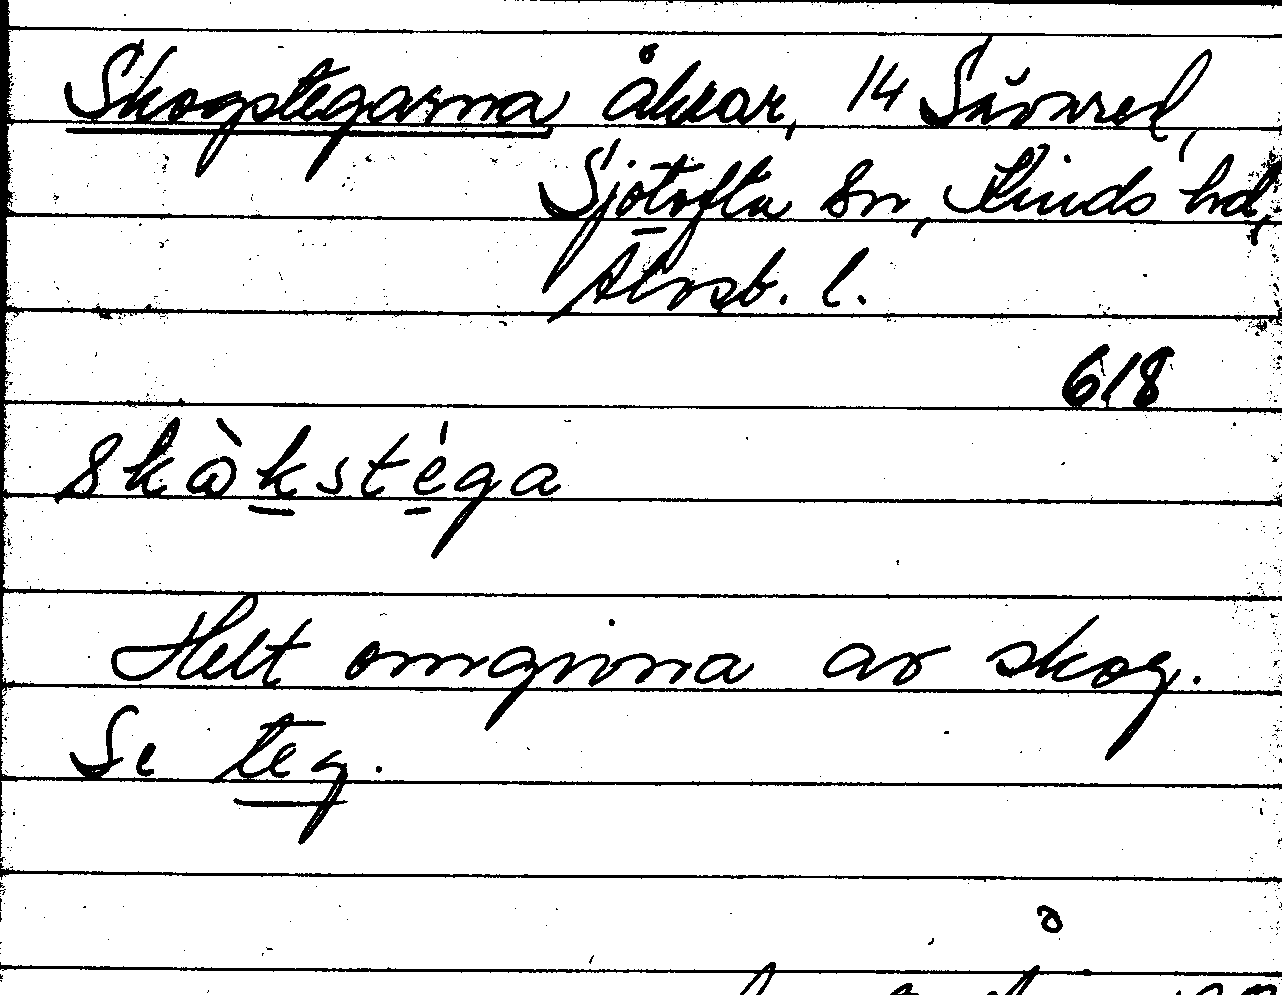 Skogstegarna åkrar, 14 Såvared,
Sjötofta sn, Kinds hd,
Älvsb. l.
618
skȧ̀kstéga
Helt omgivna av skog.
Se teg.